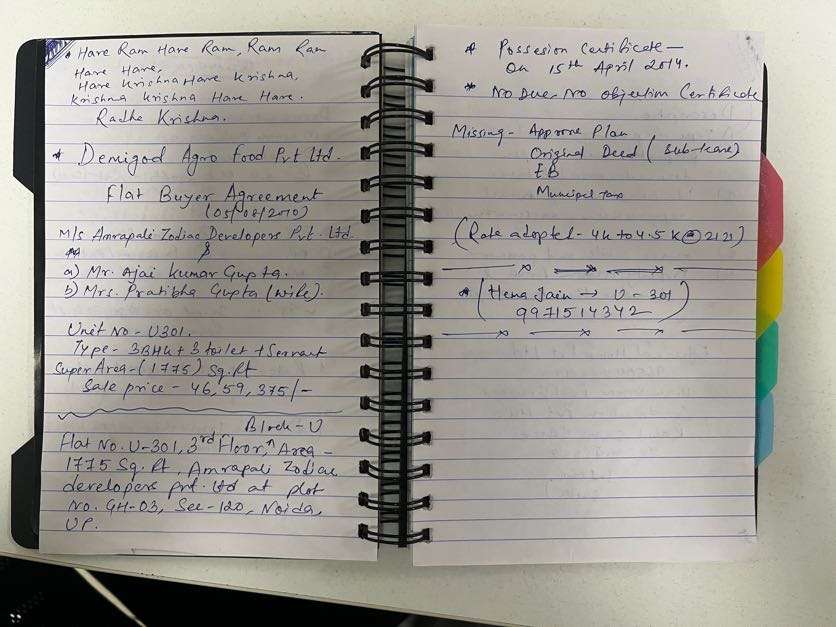 • Hare Ram Hare Ram, Ram Ram
Hare Hare,
Hare Krishna Hare Krishna,
Krishna Krishna Hare Hare.
Radhe Krishna.
* Demigod Agro Food Pvt Ltd.
Flat Buyer Agreement
(05/08/2010)
M/s Amrapali Zodiac Developers Pvt. Ltd.
&
a) Mr. Ajai Kumar Gupta.
b) Mrs. Pratibha Gupta (wife).
Unit No - U301.
Type - 3BHK + 3 toilet + Servant
Super Area - (1775) Sq. Ft
Sale price - 46,59,375/-
Block - U
Flat No. U-301, 3rd Floor, Area -
1775 Sq. Ft, Amrapali Zodiac
developers pvt. ltd at plot
No. GH-03, Sec-120, Noida,
UP.
* Possesion Certificate -
On 15th April 2014.
* No Due No objection Certificate
Missing - Approve Plan
Original Deed (Sub-lease)
EB
Municipal tax
(Rate adopted - 4k to 4.5K 2121)
* (Hena Jain → U-301)
9971514342